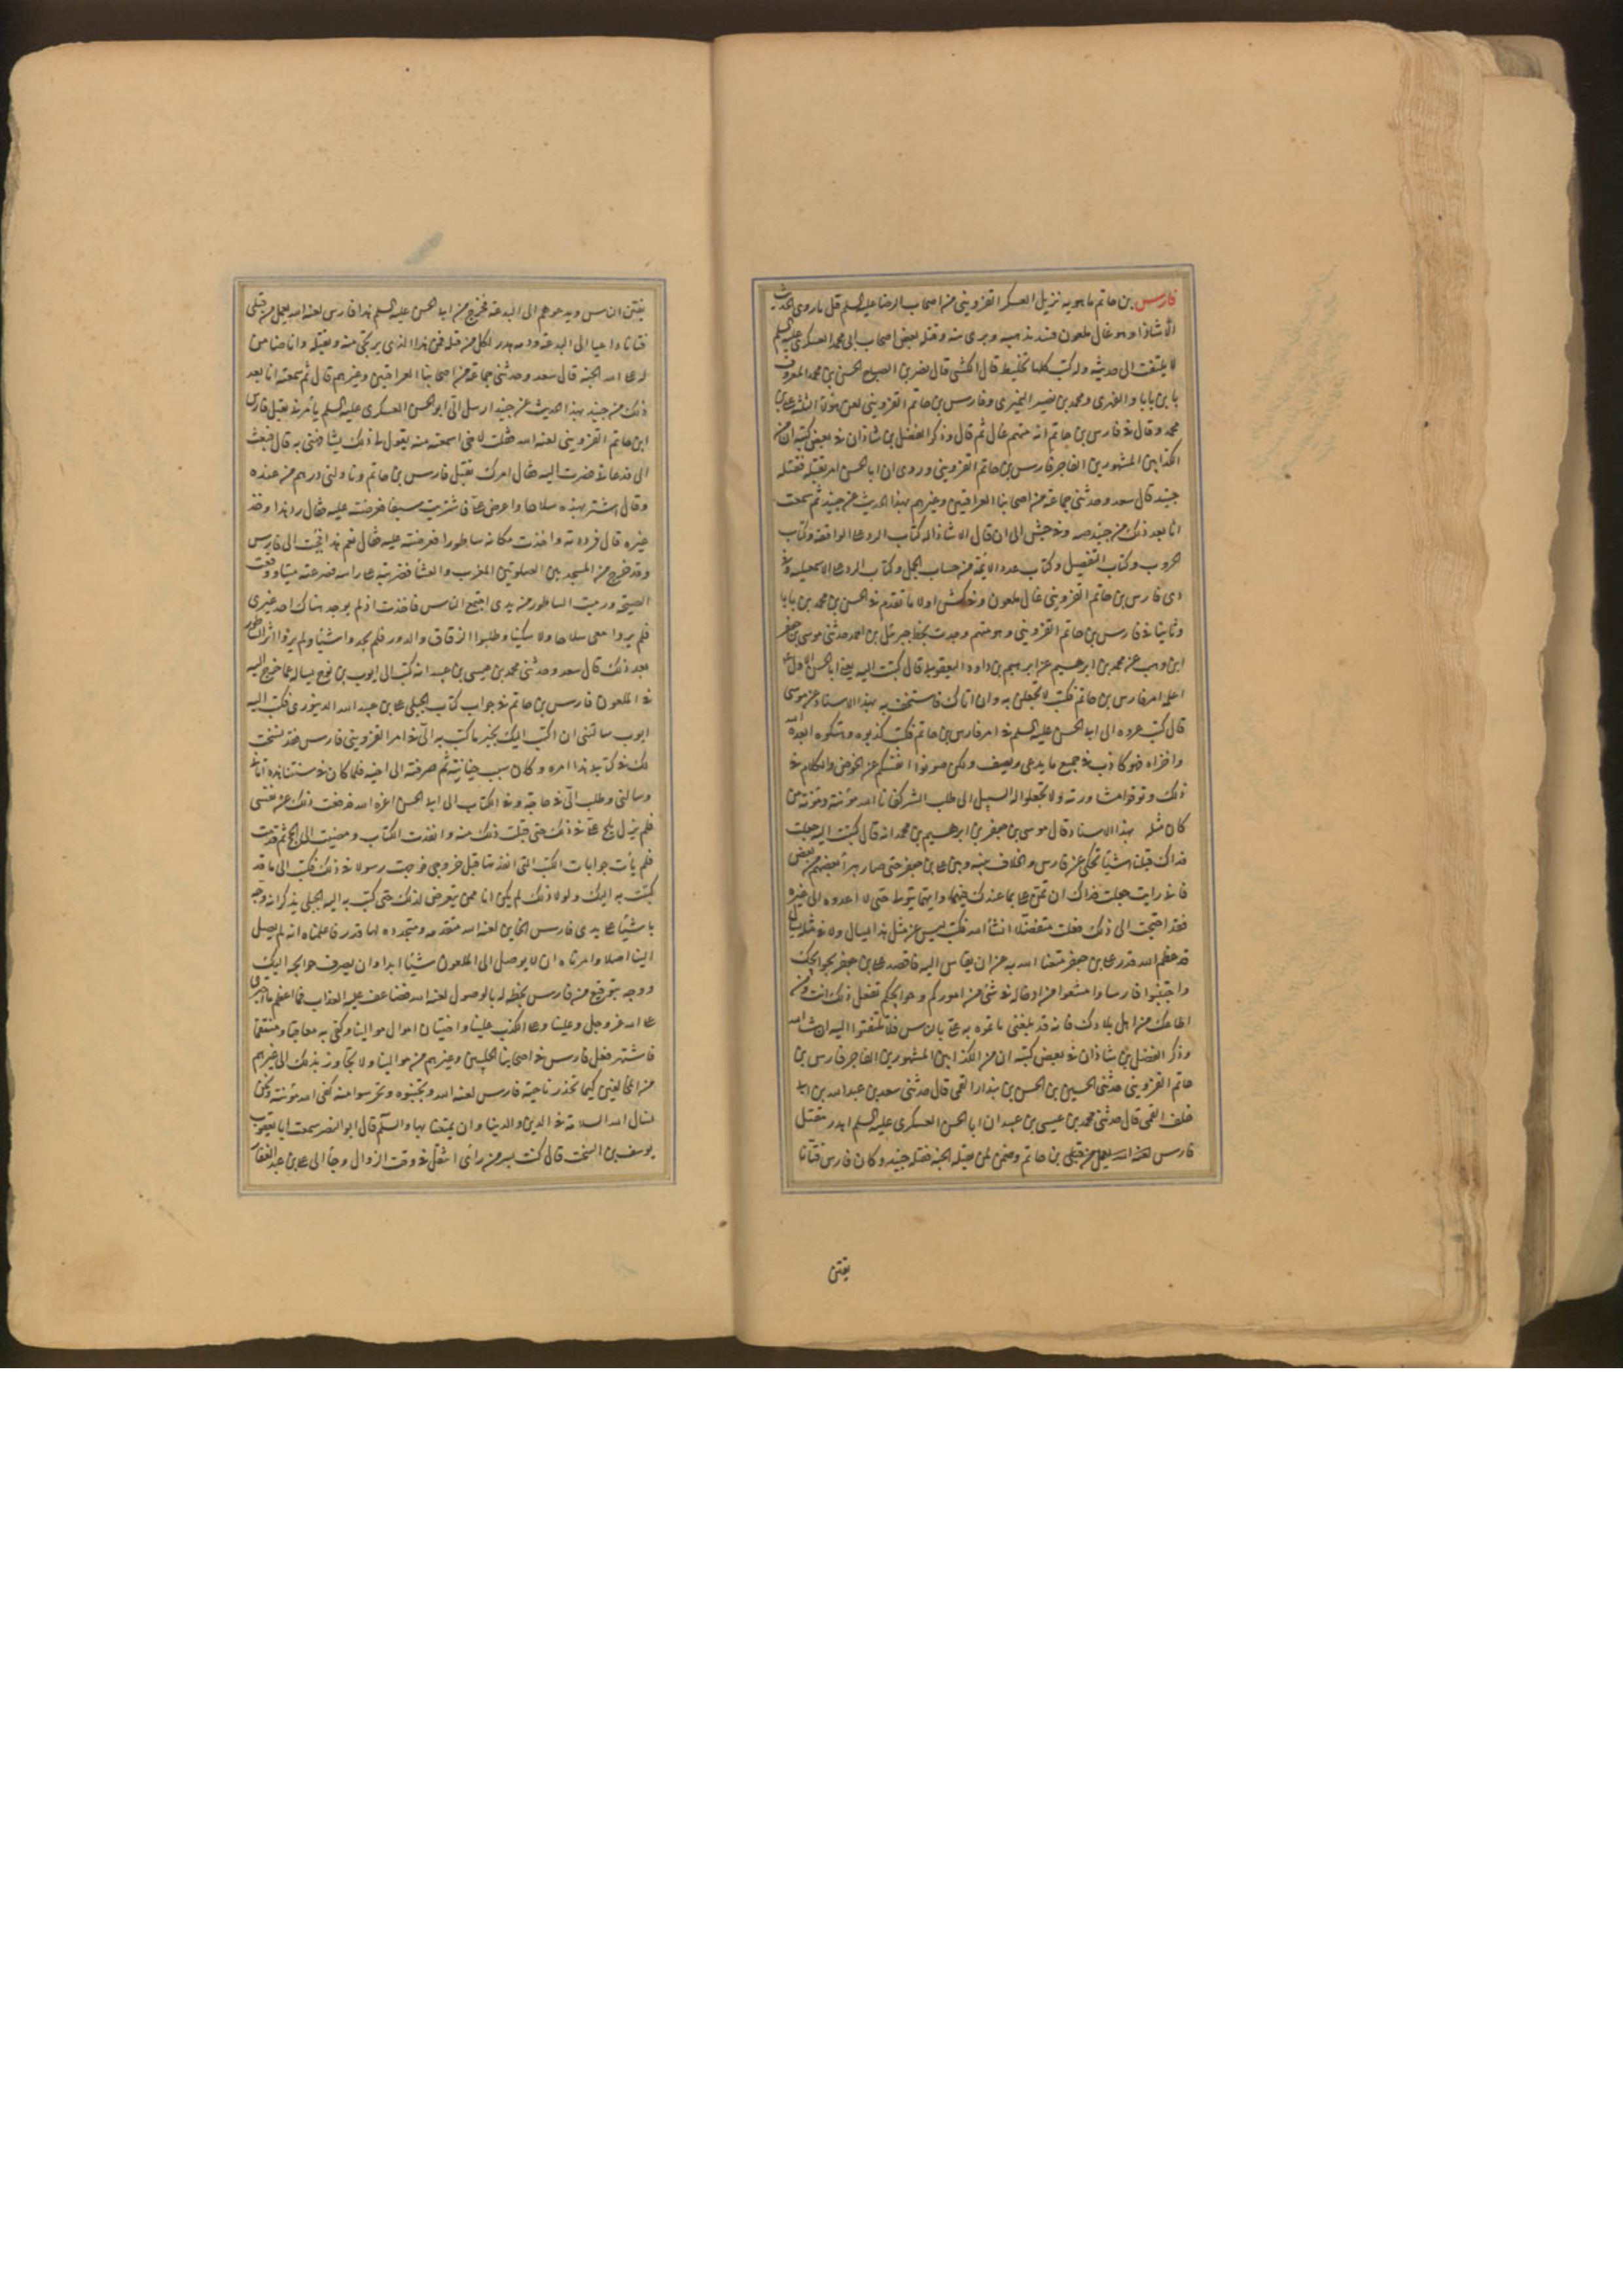 فارس بن حاتم ماهويه نزيل العسكر القزويني من اصحاب الرضا عليه السلم قل ما روى الحديث
الا شاذا وهو غال ملعون فسد مذهبه وبرى منه وقتله بعض اصحاب ابى محمد العسكرى عليه السلم
لا يلتفت الى حديثه وله كتب كلها تخليط قال الكشى قال نضر بن الصباح الحسن بن محمد المعروف
بابن بابا و محمد بن نصير النميرى وفارس بن حاتم القزويني لعن هؤلاء الثلثه على بن
محمد وقال فى فارس بن حاتم انه متهم غال ثم قال وذكر الفضل بن شاذان فى بعض كتبه ان من
الكذابين المشهورين الفاجر فارس بن حاتم القزويني وروى ان ابا الحسن امر بقتله فقتله
جنيد قال سعد وحدثنى جماعة من اصحابنا العراقيين وغيرهم بهذا الحديث عن جنيد ثم سمعت
انا بعد ذلك من جنيد الى ان قال الا شاذا له كتاب الرد على الواقفه وكتاب
الحروب وكتاب التفضيل وكتاب عدد الائمة من حساب الجمل وكتاب الرد على الاسمعيليه وفى
دى فارس بن حاتم القزويني غال ملعون وفى كش اولا ما تقدم فى الحسن بن محمد بن بابا
وثانيا فى فارس بن حاتم القزويني وهو متهم وجدت بخط جبرئيل بن احمد حدثنى موسى بن جعفر
ابن وهب عن محمد بن ابرهيم عن ابرهيم بن داود اليعقوبى قال كتبت اليه يعنى ابا الحسن الاول
اعلمه امر فارس بن حاتم فكتب لا تحفلن به وان اتاك فاستخف به بهذا الاسناد عن موسى
قال كتب عروه الى ابى الحسن عليه السلم فى امر فارس بن حاتم فكتب كذبوه وهتكوه ابعده الله
واخزاه فهو كاذب فى جميع ما يدعى ويصف ولكن صونوا انفسكم عن الخوض والكلام فى
ذلك وتوقوا مشاورته ولا تجعلوا له السبيل الى طلب الشر كفانا الله مؤنته ومؤنة من
كان مثله بهذا الاسناد قال موسى بن جعفر بن ابرهيم بن محمد انه قال كتبت اليه جعلت
فداك قبلنا اشياء تحكى عن فارس والخلاف بينه وبين على بن جعفر حتى صار يبرأ بعضهم من بعض
فان رايت جعلت فداك ان تمن على بما عندك فيهما وايهما يتولى حتى لا اعدوه الى غيره
فقد احتجت الى ذلك فعلت متفضلا انشأ الله فكتب ليس عن مثل هذا يسال ولا فى مثله يشك
قد عظم الله قدر على بن جعفر متعنا الله به من ان يقاس اليه فاقصد على بن جعفر بحوائجك
واجتنبوا فارسا وامتنعوا من ادخاله فى شئ من اموركم وحوائجكم تفعل ذلك انت ومن
اطاعك من اهل بلادك فانه قد بلغنى ما تموه به على الناس فلا تلتفتوا اليه ان شاء الله
وذكر الفضل بن شاذان فى بعض كتبه ان من الكذابين المشهورين الفاجر فارس بن
حاتم القزويني حدثنى الحسين بن الحسن بن بندار القمى قال حدثنى سعد بن عبد الله بن ابى
خلف القمى قال حدثنى محمد بن عيسى بن عبيد ان ابا الحسن العسكرى عليه السلم اهدر مقتل
فارس بن حاتم وضمن لمن يقتله الجنه فقتله جنيد وكان فارس فتانا
يفتن
يفتن الناس ويدعوهم الى البدعة فخرج من ابى الحسن عليه السلم هذا فارس لعنه الله يعمل من قبلى
فتانا داعيا الى البدعة ودمه هدر لكل من قتله فمن هذا الذى يريحنى منه ويقتله وانا ضامن
له على الله الجنه قال سعد وحدثنى جماعة من اصحابنا العراقيين وغيرهم قال ثم سمعته انا بعد
ذلك من جنيد بهذا الحديث عن جنيد ارسل الى ابو الحسن العسكرى عليه السلم يأمرنى بقتل فارس
ابن حاتم القزويني لعنه الله فقلت لا حتى اسمعه منه يقول لى ذلك يشافهنى به قال فبعث
الى فدعانى فصرت اليه فقال امرك بقتل فارس بن حاتم وناولنى دراهم من عنده
وقال اشتر بهذه سلاحا واعرضه على فاشتريت سيفا فعرضته عليه فقال رد هذا وخذ
غيره قال فرددته واخذت مكانه ساطورا فعرضته عليه فقال نعم هذا فجئت الى فارس
وقد خرج من المسجد بين الصلوتين المغرب والعشأ فضربته على راسه فصرعته ميتا ووقعت
الصيحة ورميت الساطور من يدى اجتمع الناس فاخذت اذ لم يوجد هناك احد غيرى
فلم يروا معى سلاحا ولا سكينا وطلبوا الزقاق والدور فلم يجدوا شيئا ولم يروا اثر الساطور
بعد ذلك قال سعد وحدثنى محمد بن عيسى بن عبيد انه كتب الى ايوب بن نوح يساله عما خرج اليه
فى الملعون فارس بن حاتم فى جواب كتاب الجبلى على بن عبيد الله الدينورى فكتب اليه
ايوب سالتنى ان اكتب اليك بخبر ما كتب به الى فى امر القزويني فارس فقد نسخت
لك فى كتابى هذا امره وكان سبب خيانته ثم صرفته الى اخيه فلما كان فى سنتنا هذه اتانى
وسالنى وطلب الى فى حاجته وفى الكتاب الى ابى الحسن اعزه الله فدفعت ذلك عن نفسى
فلم يزل يلح على فى ذلك حتى قبلت ذلك منه وانفذت الكتاب ومضيت الى الحج ثم قدمت
فلم يأت جوابات الكتب التى انفذتها قبل خروجى فوجهت رسولا فى ذلك فكتب الى ما قد
كتبت به اليك ولولا ذلك لم يكن انا ممن يتعرض لذلك حتى كتب به اليه الجبلى يذكر انه وجه
باشيأ على يدى فارس الخاين لعنه الله متقدمه ومتجدده لها قدر فاعلمناه انه لم يصل
الينا اصلا وامرناه ان لا يوصل الى الملعون شيئا ابدا وان يصرف حوائجه اليك
ووجه بتوقيع من فارس بخطه له بالوصول لعنه الله وضاعف عليه العذاب فما اعظم ما اجترى
على الله عز وجل وعلينا وعلى الكذب علينا واختيان اموال موالينا وكفى به معاقبا ومنتقما
فاشتهر فعل فارس فى اصحابنا الجبليين وغيرهم من موالينا ولا تجاوز بذلك الى غيرهم
من المخالفين كيما تحذر ناحية فارس لعنه الله وتجتنبوه وتحرسوا منه كفى الله مؤنته ونحن
نسال الله السلامة فى الدين والدنيا وان يمتعنا بها والسلم قال ابو النضر سمعت ابا يعقوب
يوسف بن السخت قال كنت بسر من رأى اتنفل فى وقت الزوال وجأ الى على بن عبد الغفار